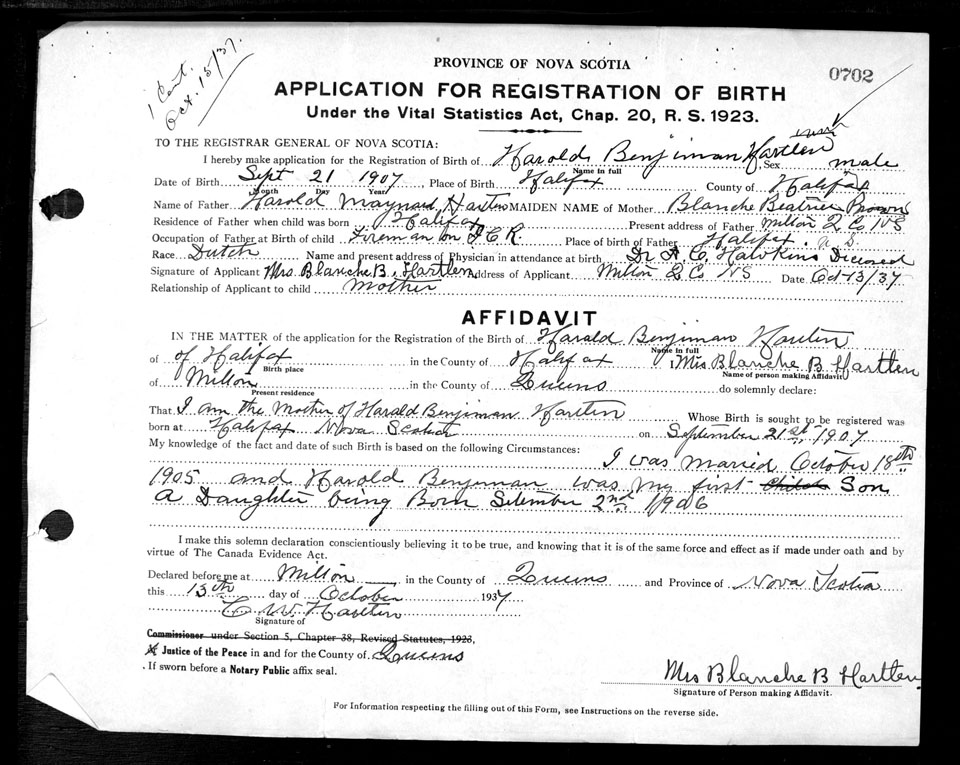 1 Cert.
Oct. 15/37.
PROVINCE OF NOVA SCOTIA
0702
APPLICATION FOR REGISTRATION OF BIRTH
Under the Vital Statistics Act, Chap. 20, R. S. 1923.
TO THE REGISTRAR GENERAL OF NOVA SCOTIA:
I hereby make application for the Registration of Birth of Harold Benjiman Hartlen Sex male
Name in full
Date of Birth Sept 21 1907 Place of Birth Halifax County of Halifax
Month Day Year
Name of Father Harold Maynard Hartlen MAIDEN NAME of Mother Blanche Beatrice Brown
Residence of Father when child was born Halifax Present address of Father Milton Q. Co NS
Occupation of Father at Birth of child Fireman on I.C.R. Place of birth of Father Halifax. N. S.
Race Dutch Name and present address of Physician in attendance at birth Dr A. C. Hawkins Diceased
Signature of Applicant Mrs. Blanche B. Hartlen Address of Applicant Milton Q Co NS Date Oct 13/37
Relationship of Applicant to child Mother
AFFIDAVIT
IN THE MATTER of the application for the Registration of the Birth of Harald Benjiman Hartlen
Name in full
of of Halifax in the County of Halifax I, Mrs Blanche B Hartlen
Birth place Name of person making Affidavit
of Milton in the County of Queens do solemnly declare:
Present residence
That I am the Mother of Harald Benjiman Hartlen Whose Birth is sought to be registered was
born at Halifax Nova Scotia on September 21st, 1907
My knowledge of the fact and date of such Birth is based on the following Circumstances: I was married October 18th
1905 and Harold Benjiman was my first Child Son
a Daughter being Born Setember 2nd 1906
I make this solemn declaration conscientiously believing it to be true, and knowing that it is of the same force and effect as if made under oath and by
virtue of The Canada Evidence Act.
Declared before me at Milton in the County of Queens and Province of Nova Scotia
this 13th day of October 1937
C W Hartlen
Signature of
Commissioner under Section 5, Chapter 38, Revised Statutes, 1923,
Justice of the Peace in and for the County of Queens
If sworn before a Notary Public affix seal.
Mrs Blanche B Hartlen
Signature of Person making Affidavit.
For Information respecting the filling out of this Form, see Instructions on the reverse side.